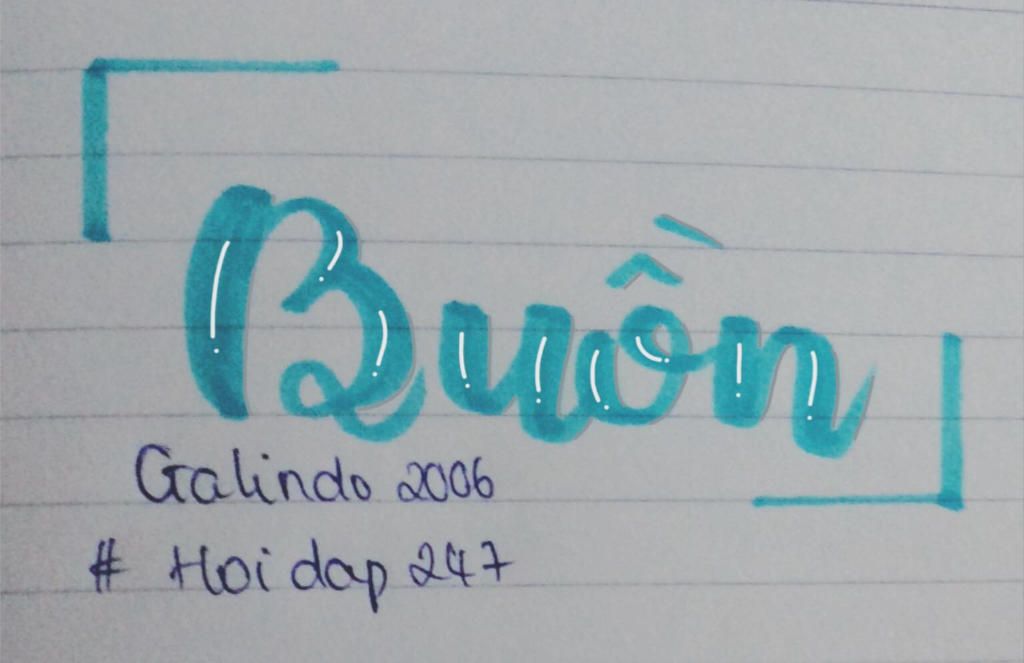 Buồn
Galindo 2006
# Hoi dap 247